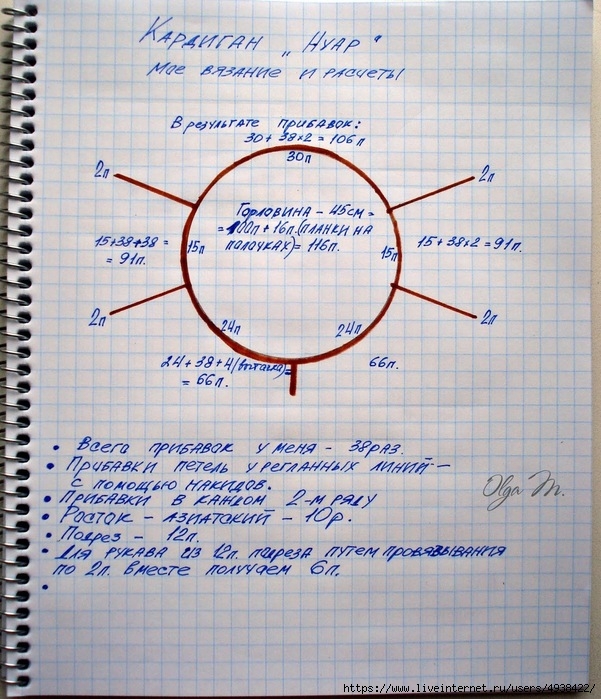 Кардиган „Нуар"
Мое вязание и расчеты
В результате прибавок:
30 + 38×2 = 106п
30п
2п
2п
Горловина – 45см =
= 100п + 16п.(планки на
полочках) = 116п.
15+38+38 =
= 91п.
15п
15п
15 + 38×2 = 91п.
2п
2п
24п
24п
24 + 38 + 4
= 66п.
66п.
• Всего прибавок у меня – 38раз.
• Прибавки петель у регланных линий –
с помощью накидов.
• Прибавки в каждом 2-м ряду
• Росток – азиатский – 10р.
• Подрез – 12п.
• Для рукава из 12п. подреза путем провязывания
по 2п. вместе получаем 6п.
•
Olga M.
https://www.liveinternet.ru/users/4938422/